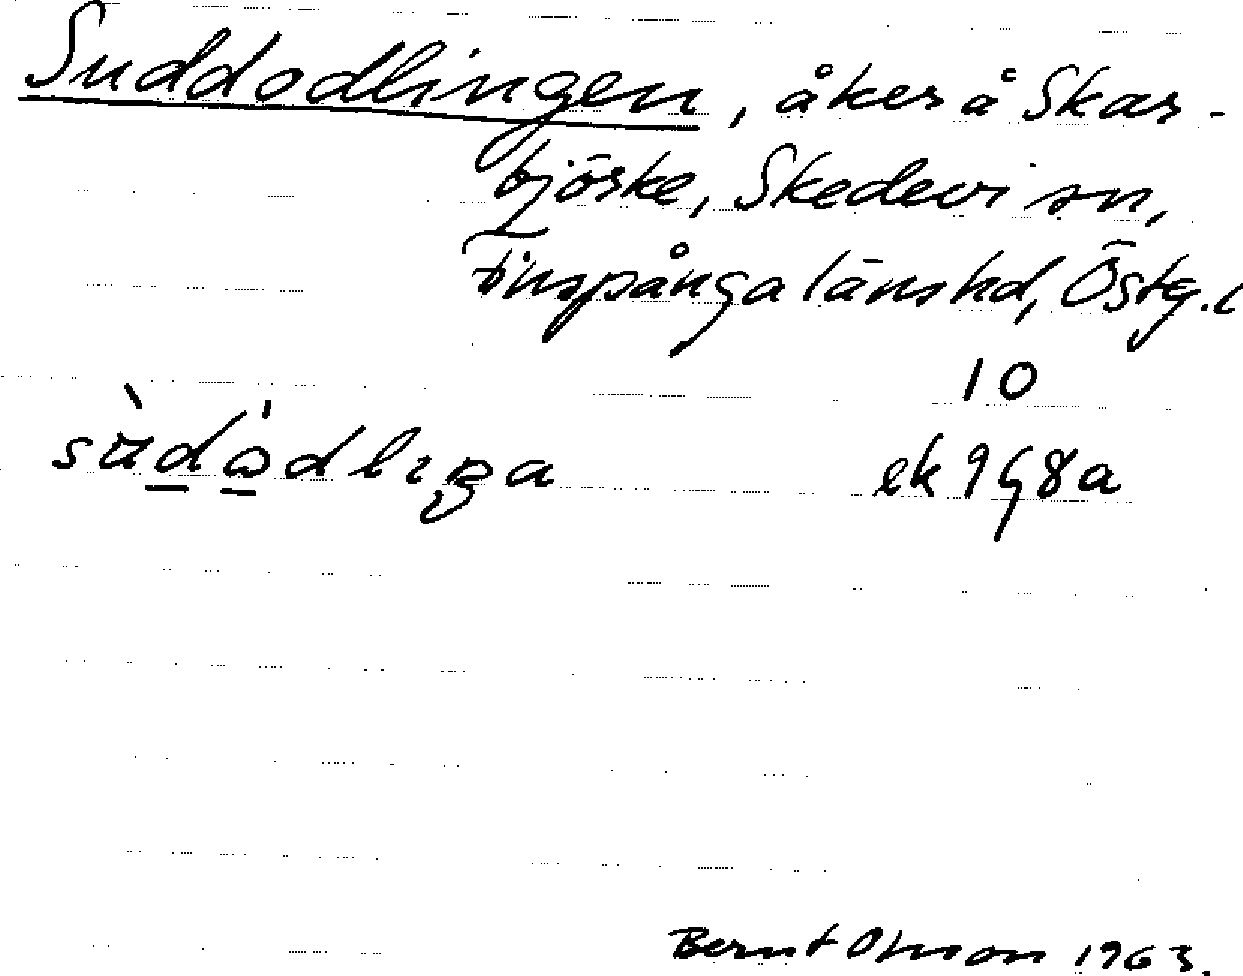 Suddodlingen, åker å Skar-
björke, Skedevi sn,
Finspånga länshd, Östg. l
10
sùdόdlıŋa ek 9G8a
Bernt Olsson 1963.